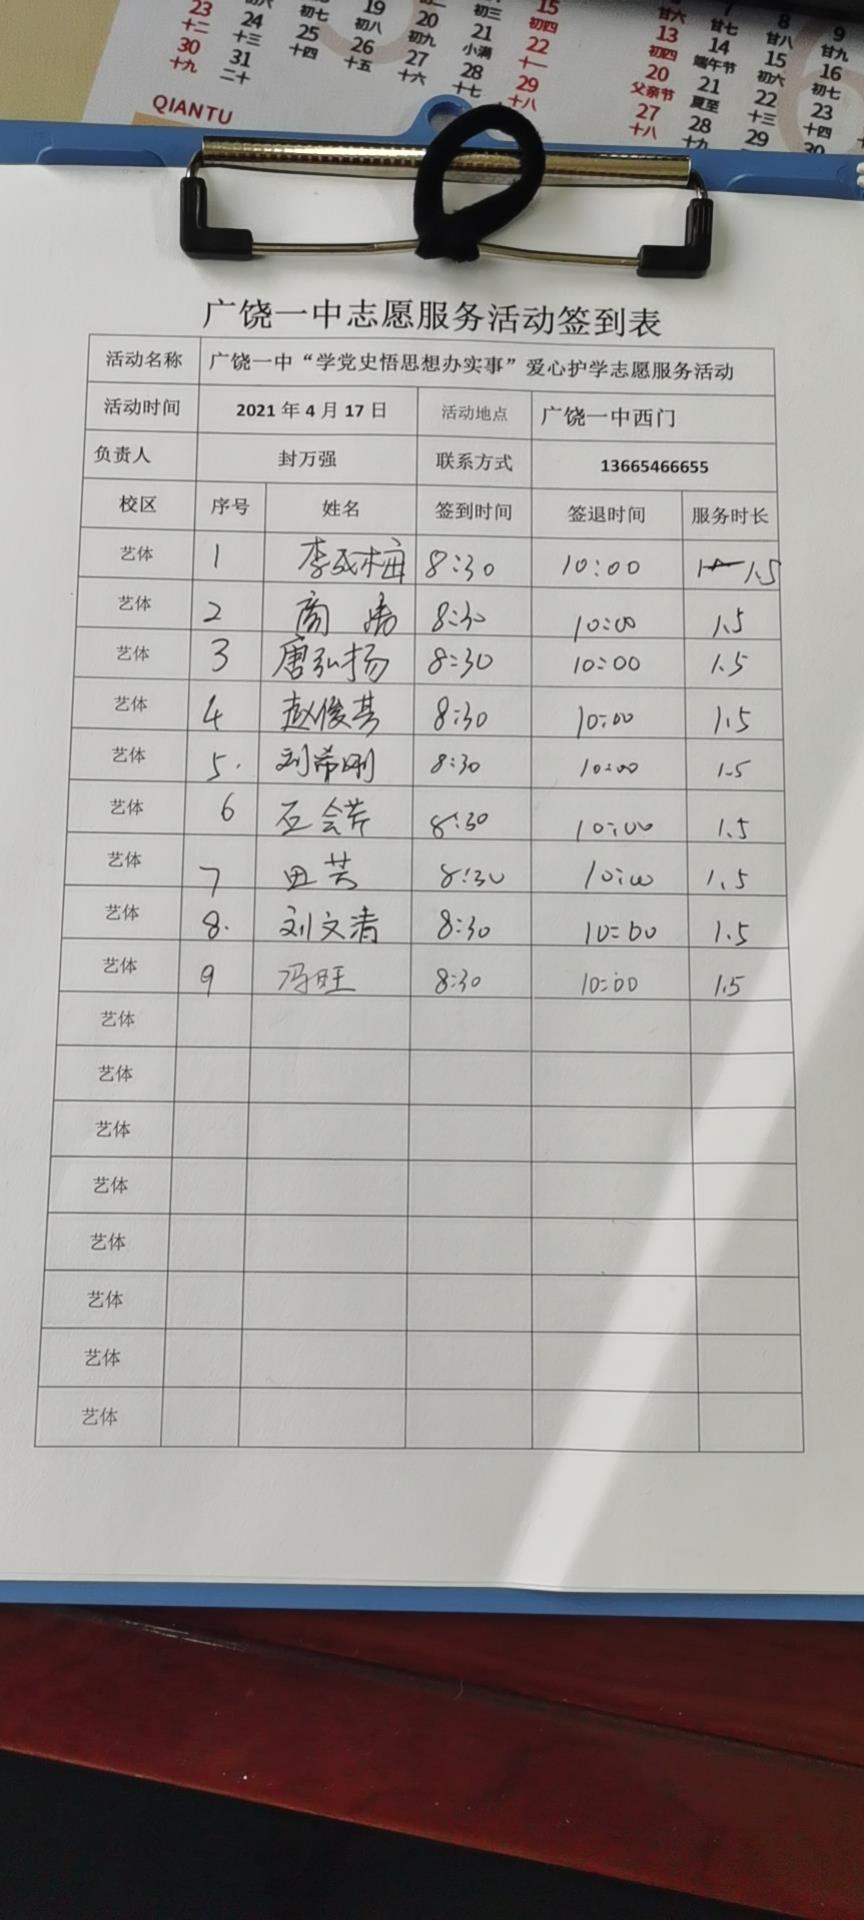 23 24 初七 19 20 初三 15
十二 十三 25 初八 初九 21 初四
30 31 十四 26 27 小满 22
十九 二十 十五 十六 28 十一
十七 29
十八
QIANTU
廿六 7 8 9
13 廿七 廿八 廿九
初四 14 15 16
20 端午节 初六 初七
父亲节 21 22 23
27 夏至 十三 十四
十八 28 29 30
十九
广饶一中志愿服务活动签到表
活动名称 广饶一中“学党史悟思想办实事”爱心护学志愿服务活动
活动时间 2021 年 4 月 17 日 活动地点 广饶一中西门
负责人 封万强 联系方式 13665466655
校区 序号 姓名 签到时间 签退时间 服务时长
艺体 1 李成梅 8:30 10:00 1.5
艺体 2 商 8:30 10:00 1.5
艺体 3 唐弘扬 8:30 10:00 1.5
艺体 4 赵俊芸 8:30 10:00 1.5
艺体 5. 刘希刚 8:30 10:00 1.5
艺体 6 石会芹 8:30 10:00 1.5
艺体 7 田芳 8:30 10:00 1.5
艺体 8. 刘文清 8:30 10:00 1.5
艺体 9 冯旺 8:30 10:00 1.5
艺体
艺体
艺体
艺体
艺体
艺体
艺体
艺体